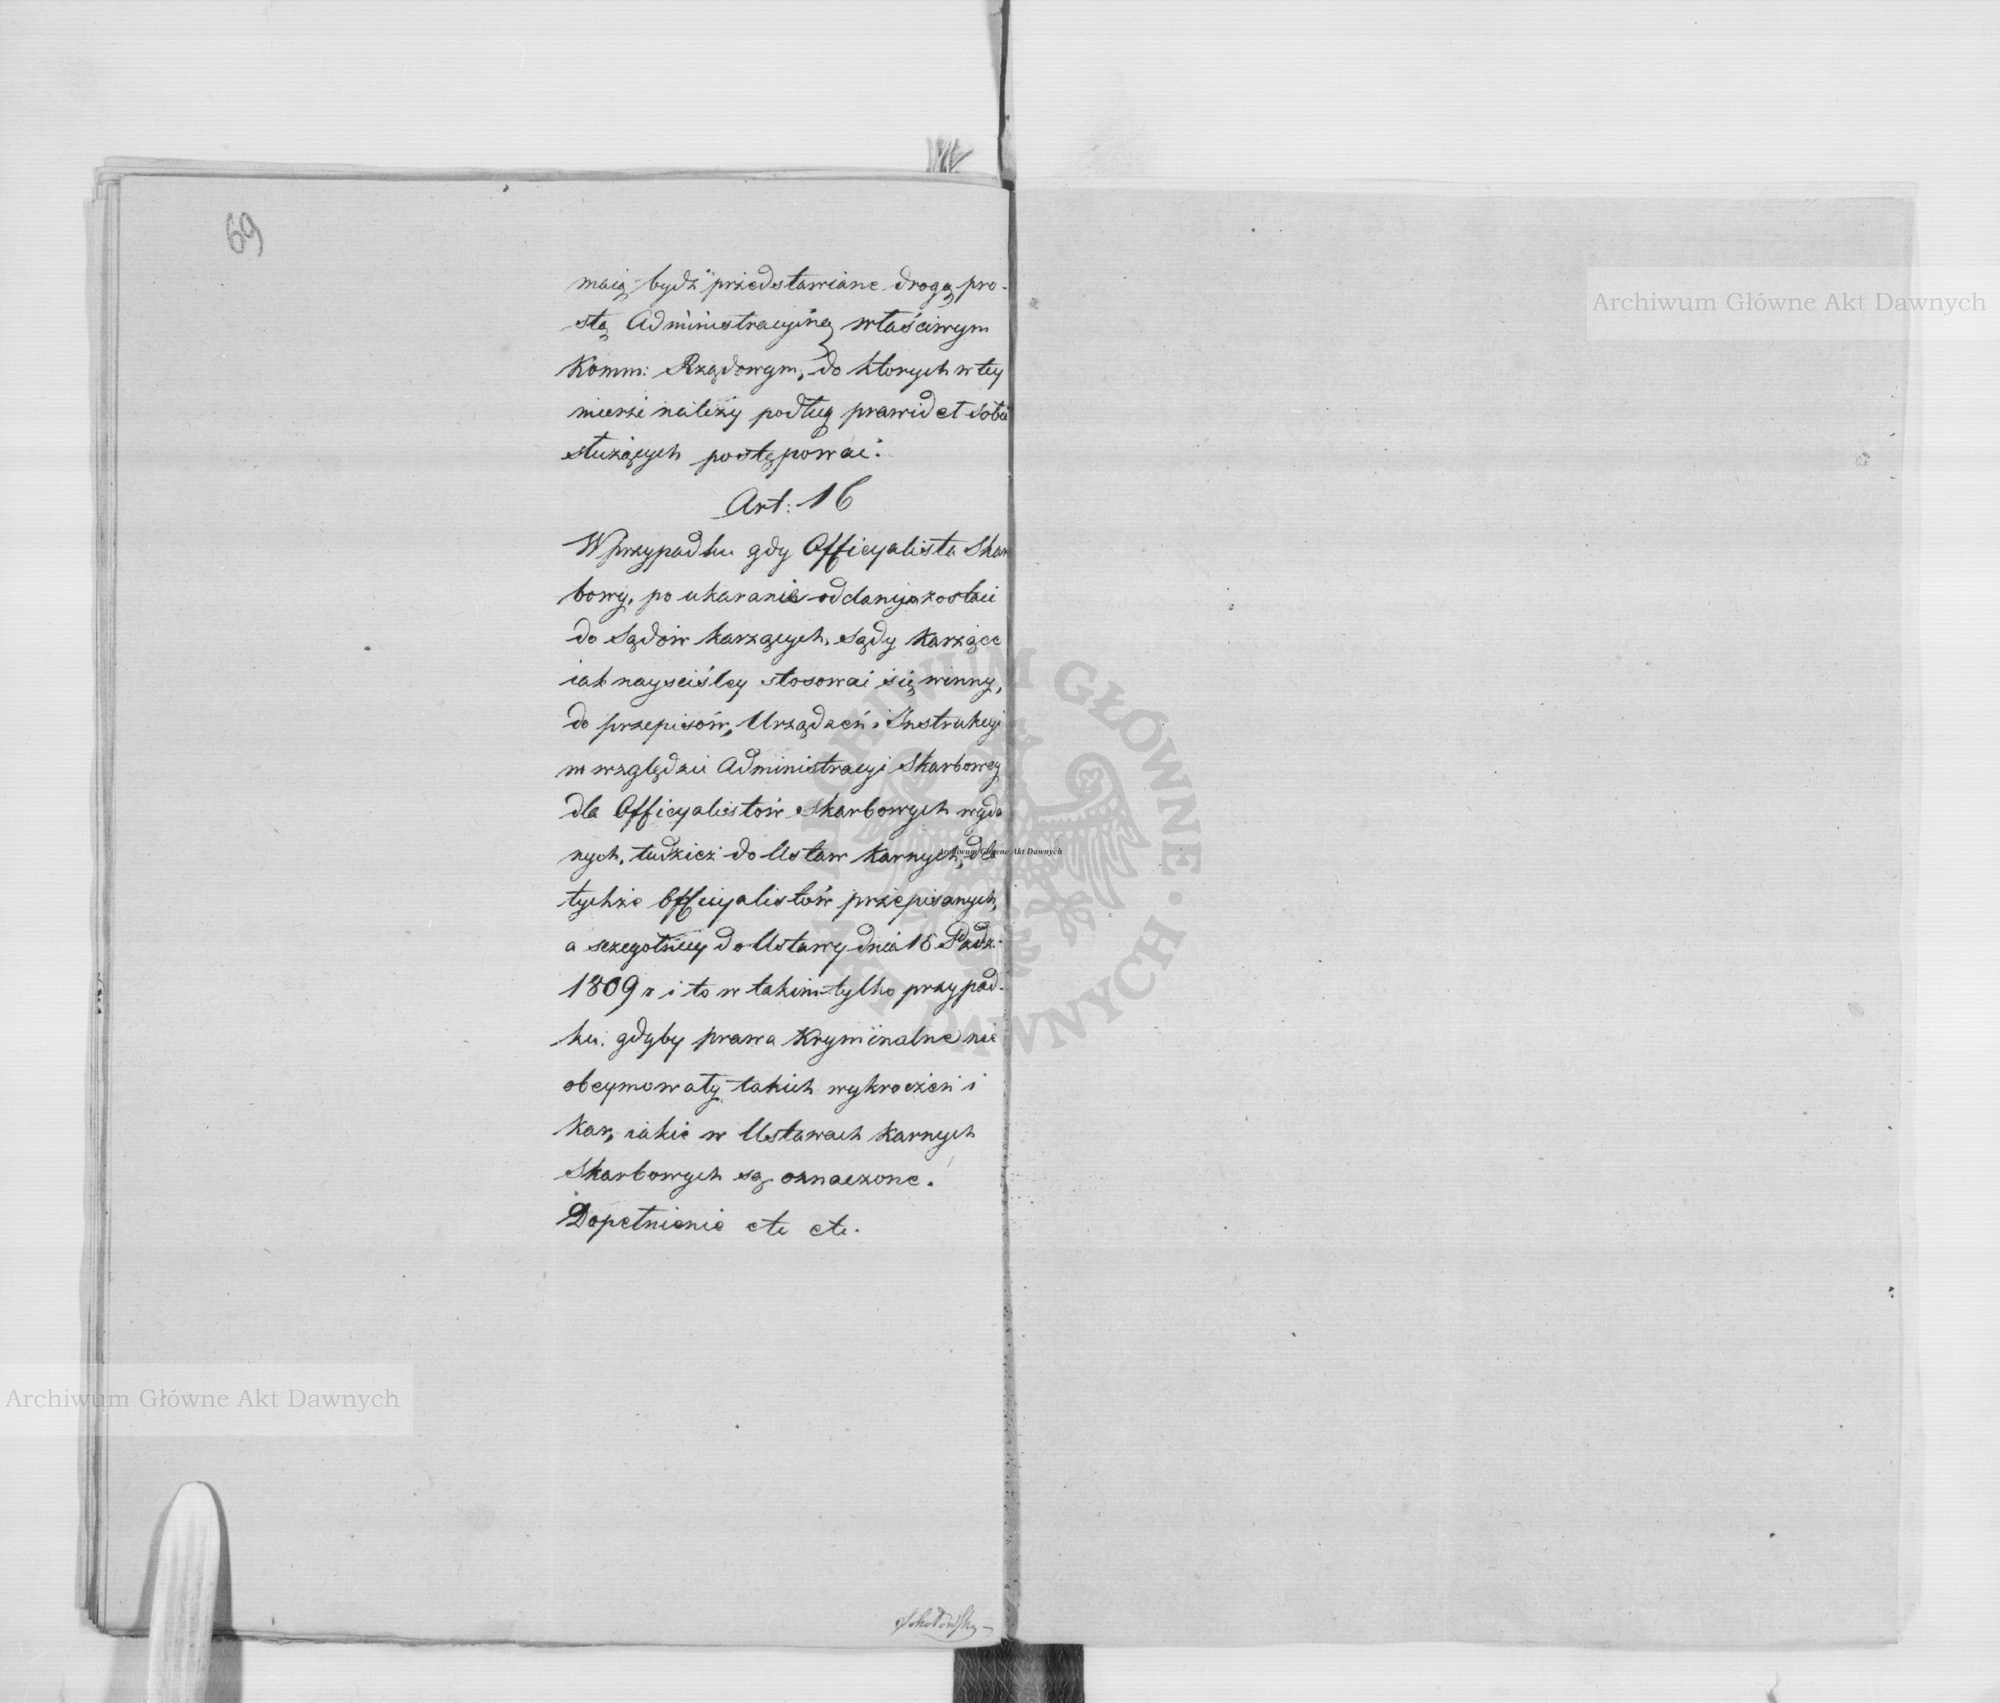 69
maią bydź przedstawiane drogą pro-
stą Administracyiną właściwym
Komm: Rządowym, do ktorych w tey
mierze należy podług prawideł sobie
służących postępować.
Art: 16
W przypadku gdy Officyalista Skar
bowy, po ukaranie oddanym zostaie
do Sądów karzących, sądy karzące
iak nayściśley stosować się winny,
do przepisów, Urządzeń i Instrukcyi
w względzie Administracyi Skarbowey
dla Officyalistów Skarbowych wyda
nych, tudzież do Ustaw karnych, dla
tychże Officyalistów przepisanych,
a szczególniey do Ustawy dnia 15 Paźdz:
1809 r i to w takim tylko przypad-
ku, gdyby prawa Kryminalne nie
obeymowały takich wykroczeń i
kar, iakie w Ustawach karnych
Skarbowych są oznaczone.
Dopełnienie etc etc.
Sokołowski
Archiwum Główne Akt Dawnych
Archiwum Główne Akt Dawnych
Archiwum Główne Akt Dawnych
ARCHIWUM GŁÓWNE AKT DAWNYCH